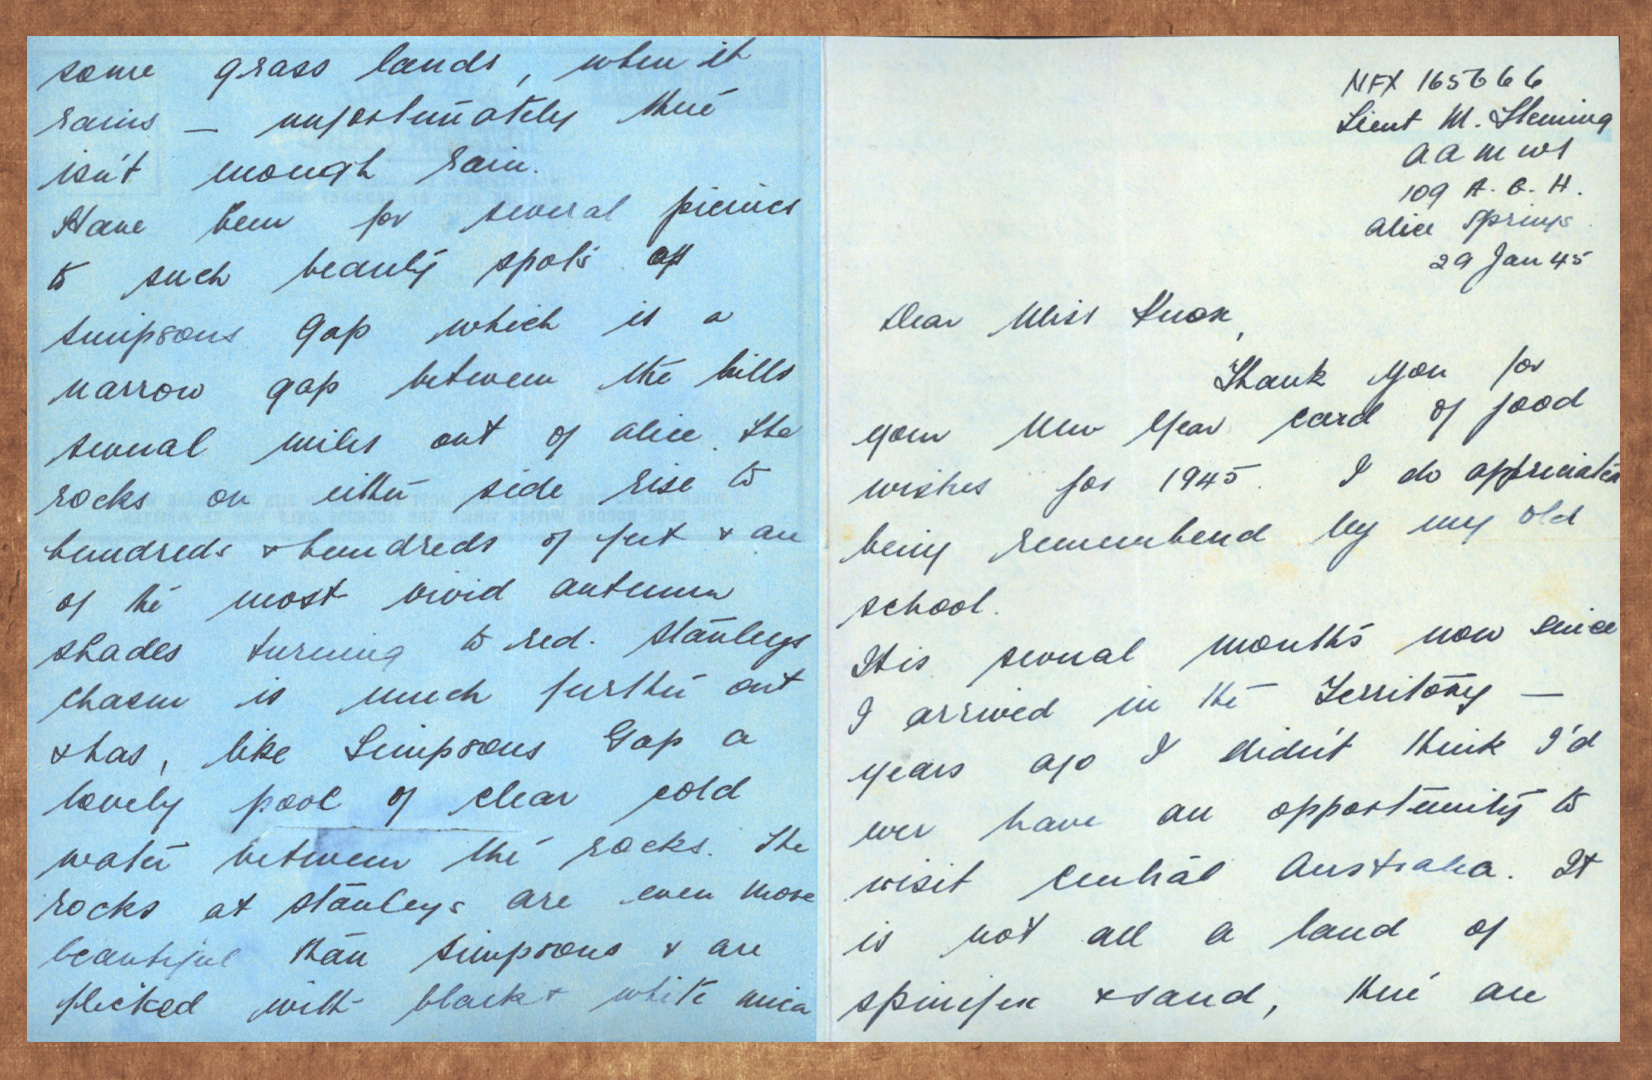 NFX 165666
Lieut M. Fleming
AAMWS
109 A. G. H.
Alice Springs
29 Jan 45
Dear Miss Knox,
Thank you for
your New Year card of good
wishes for 1945. I do appreciate
being remembered by my old
school.
It is several months now since
I arrived in the Territory —
years ago I didn't think I'd
ever have an opportunity to
visit Central Australia. It
is not all a land of
spinifex & sand, there are
some grass lands, when it
rains — unfortunately there
isn't enough rain.
Have been for several picnics
to such beauty spots as
Simpsons Gap which is a
narrow gap between the hills
several miles out of Alice. The
rocks on either side rise to
hundreds & hundreds of feet & are
of the most vivid autumn
shades turning to red. Stanleys
Chasm is much further out
& has, like Simpsons Gap a
lovely pool of clear cold
water between the rocks. The
rocks at Stanleys are even more
beautiful than Simpsons & are
flecked with black & white mica